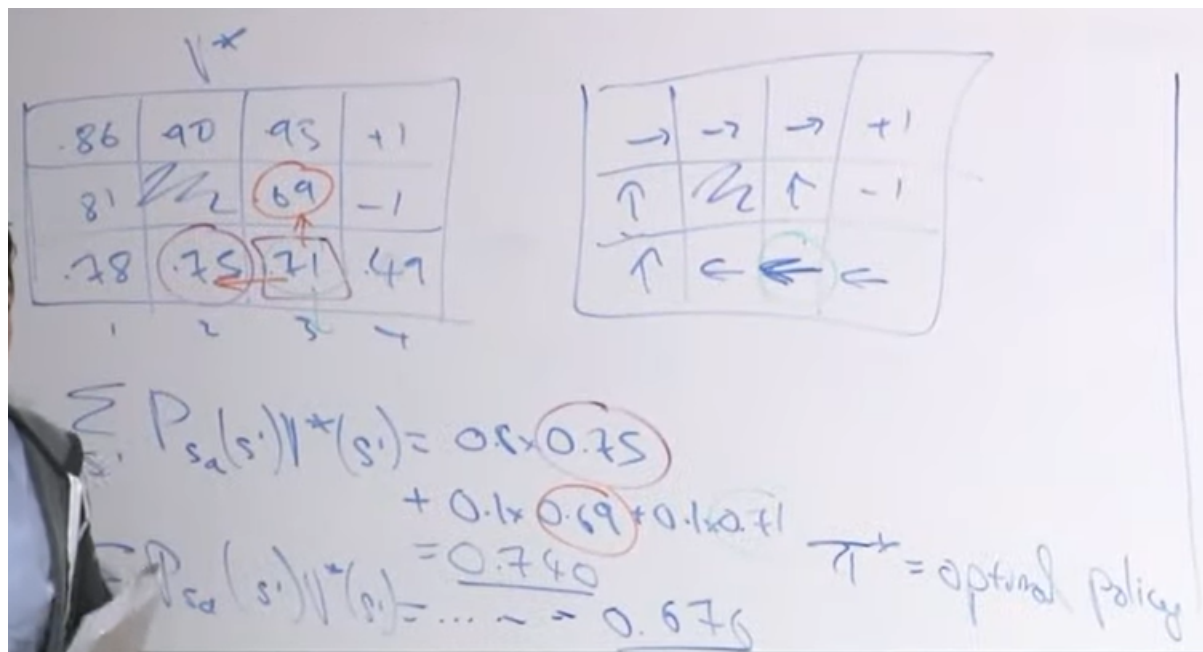 V*
.86 .90 .95 +1
.81 .69 -1
.78 .75 .71 .49
1 2 3 4
→ → → +1
↑ ↑ -1
↑ ← ← ←
Σ P_sa(s')V*(s') = 0.8 × 0.75
+ 0.1 × 0.69 + 0.1 × 0.71
= 0.740
Σ P_sa(s')V*(s') = .... = 0.676
π* = optimal policy